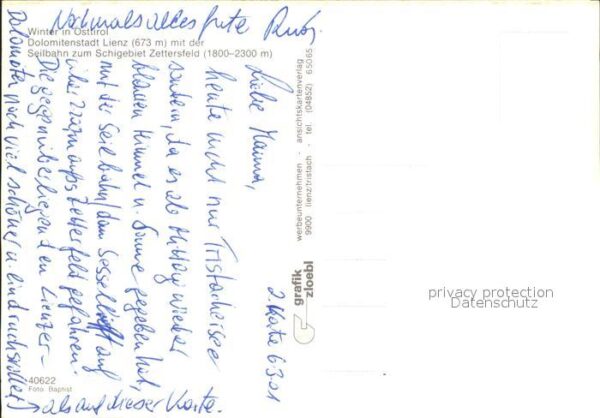 Winter in Osttirol
Dolomitenstadt Lienz (673 m) mit der
Seilbahn zum Schigebiet Zettersfeld (1800–2300 m)
2. Karte 6.3.01
Liebe Mama,
heute nicht nur Tristachersee
sondern, da es ab Mittag wieder
blauen Himmel u. Sonne gegeben hat,
mit der Seilbahn, dann Sessellift auf
über 2200m aufs Zettersfeld gefahren.
Die gegenüberliegenden Lienzer-
Dolomiten noch viel schöner u. eindrucksvoller
als auf dieser Karte.
Nochmals alles Gute
werbeunternehmen - ansichtskartenverlag
9900 lienz/tristach - tel. (04852) 65065
grafik
zloebl
40622
Foto Baptist
privacy protection
Datenschutz